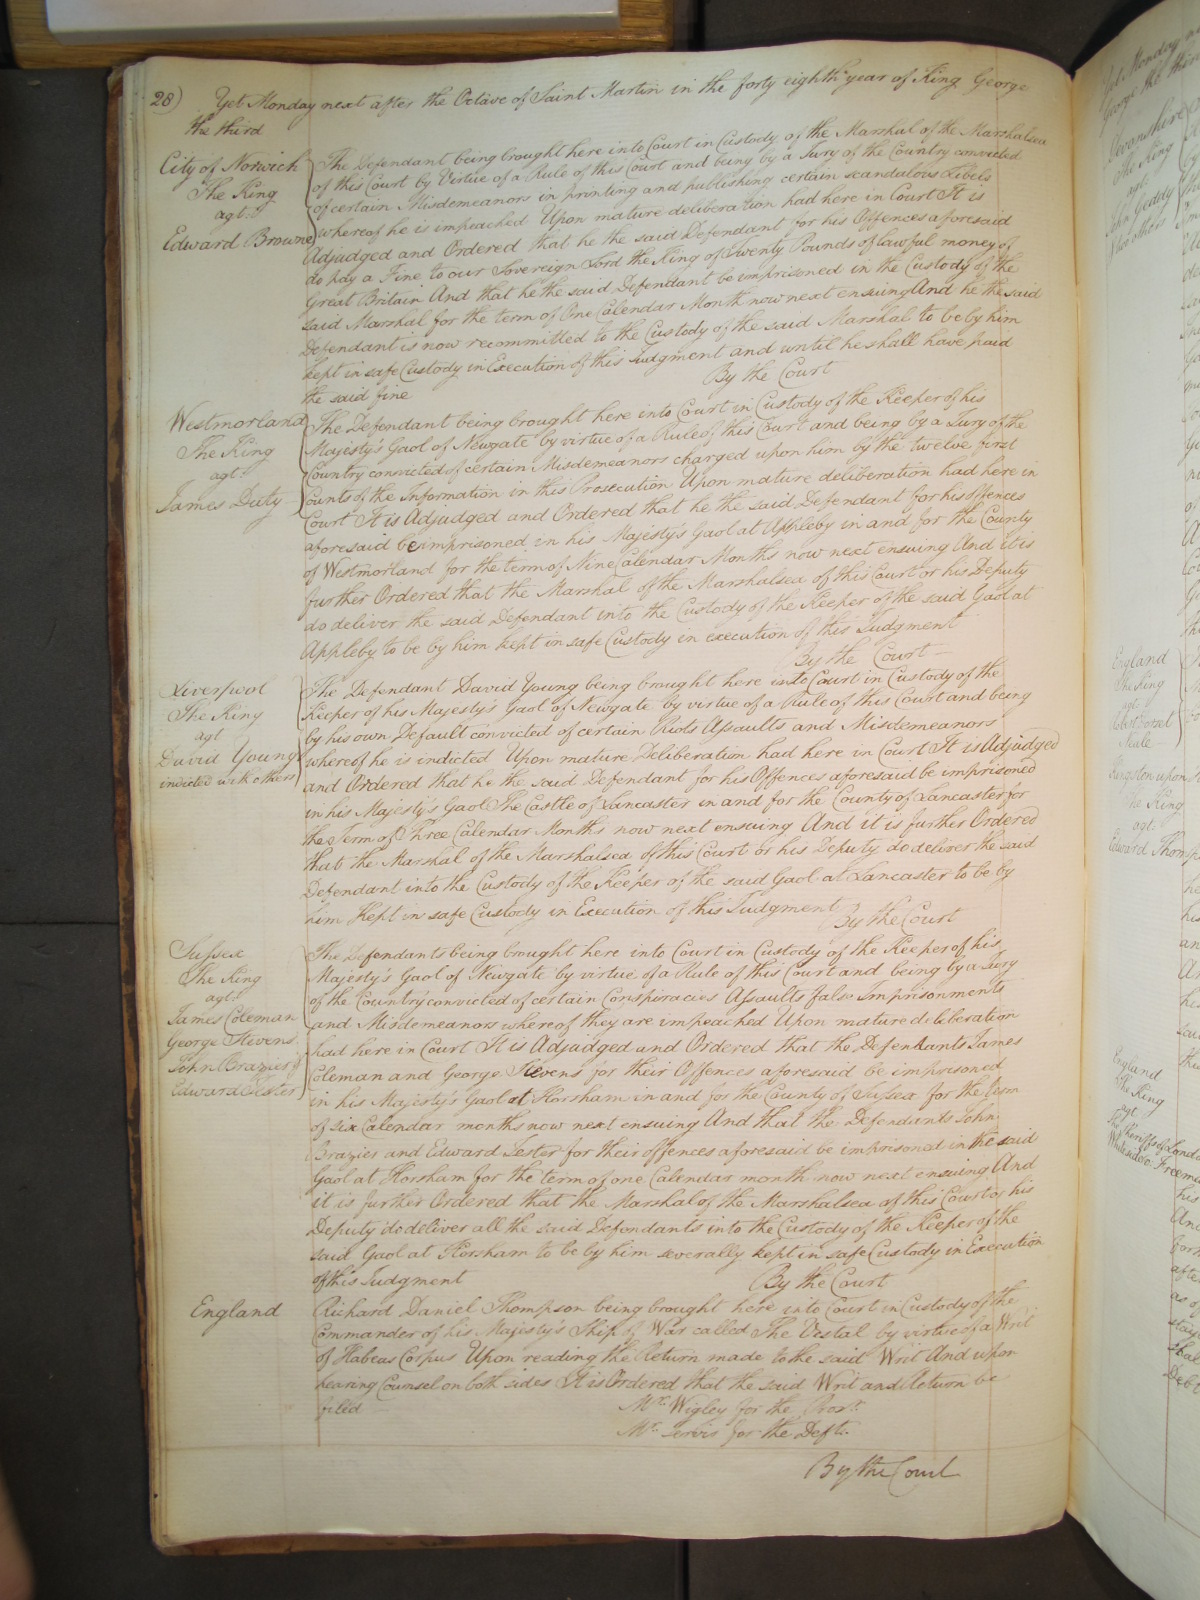 28) Yet Monday next after the Octave of Saint Martin in the forty eighth year of King George
the third
City of Norwich
The King
agt.
Edward Browne
The Defendant being brought here into Court in Custody of the Marshal of the Marshalsea
of this Court by Virtue of a Rule of this Court and being by a Jury of the Country convicted
of certain Misdemeanors in printing and publishing certain scandalous Libels
whereof he is impeached Upon mature deliberation had here in Court It is
Adjudged and Ordered that he the said Defendant for his Offences aforesaid
do pay a Fine to our Sovereign Lord the King of Twenty Pounds of lawful money of
Great Britain And that he the said Defendant be imprisoned in the Custody of the
said Marshal for the term of One Calendar Month now next ensuing And he the said
Defendant is now recommitted to the Custody of the said Marshal to be by him
kept in safe Custody in Execution of this Judgment and until he shall have paid
the said fine By the Court
Westmorland
The King
agt.
James Duty
The Defendant being brought here into Court in Custody of the Keeper of his
Majesty's Gaol of Newgate by virtue of a Rule of this Court and being by a Jury of the
Country convicted of certain Misdemeanors charged upon him by the twelve first
Counts of the Information in this Prosecution Upon mature deliberation had here in
Court It is Adjudged and Ordered that he the said Defendant for his offences
aforesaid be imprisoned in his Majesty's Gaol at Appleby in and for the County
of Westmorland for the term of Nine Calendar Months now next ensuing And it is
further Ordered that the Marshal of the Marshalsea of this Court or his Deputy
do deliver the said Defendant into the Custody of the Keeper of the said Gaol at
Appleby to be by him kept in safe Custody in execution of this Judgment
By the Court
Liverpool
The King
agt
David Young
indicted with others
The Defendant David Young being brought here into Court in Custody of the
Keeper of his Majesty's Gaol of Newgate by virtue of a Rule of this Court and being
by his own Default convicted of certain Riots Assaults and Misdemeanors
whereof he is indicted Upon mature Deliberation had here in Court It is Adjudged
and Ordered that he the said Defendant for his Offences aforesaid be imprisoned
in his Majesty's Gaol The Castle of Lancaster in and for the County of Lancaster for
the Term of Three Calendar Months now next ensuing And it is further Ordered
that the Marshal of the Marshalsea of this Court or his Deputy do deliver the said
Defendant into the Custody of the Keeper of the said Gaol at Lancaster to be by
him Kept in safe Custody in Execution of this Judgment By the Court
Sussex
The King
agt.
James Coleman
George Stevens
John Brazier &
Edward Lester
The Defendants being brought here into Court in Custody of the Keeper of his
Majesty's Gaol of Newgate by virtue of a Rule of this Court and being by a Jury
of the Country convicted of certain Conspiracies Assaults false Imprisonments
and Misdemeanors whereof they are impeached Upon mature deliberation
had here in Court It is Adjudged and Ordered that the Defendants James
Coleman and George Stevens for their Offences aforesaid be imprisoned
in his Majesty's Gaol at Horsham in and for the County of Sussex for the term
of six Calendar months now next ensuing And that the Defendants John
Brazier and Edward Lester for their offences aforesaid be imprisoned in the said
Gaol at Horsham for the term of one Calendar month now next ensuing And
it is further Ordered that the Marshal of the Marshalsea of this Court or his
Deputy do deliver all the said Defendants into the Custody of the Keeper of the
said Gaol at Horsham to be by him severally kept in safe Custody in Execution
of this Judgment By the Court
England
Richard Daniel Thompson being brought here into Court in Custody of the
Commander of his Majesty's Ship of War called The Vestal by virtue of a Writ
of Habeas Corpus Upon reading the Return made to the said Writ And upon
hearing Counsel on both sides It is Ordered that the said Writ and Return be
filed Mr. Wigley for the Prosr.
Mr. Jervis for the Deft.
By the Court
Yet Monday
George the thir
Devonshire
The King
agt.
John Geddy
England
The King
agt.
Kingston upon
The King
agt.
Edward Thom
England
The King
agt
The Sheriffs of London